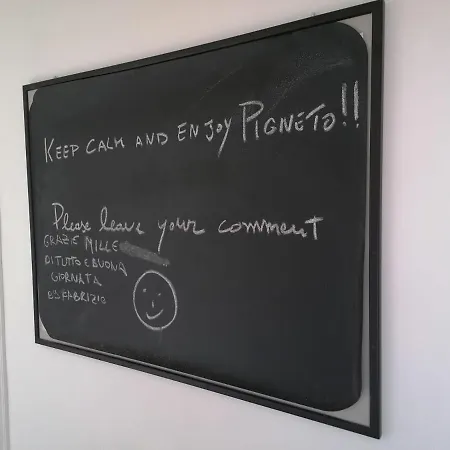 KEEP CALM AND ENJOY PIGNETO!!
Please leave your comment
GRAZIE MILLE
DI TUTTO E BUONA
GIORNATA
FABRIZIO